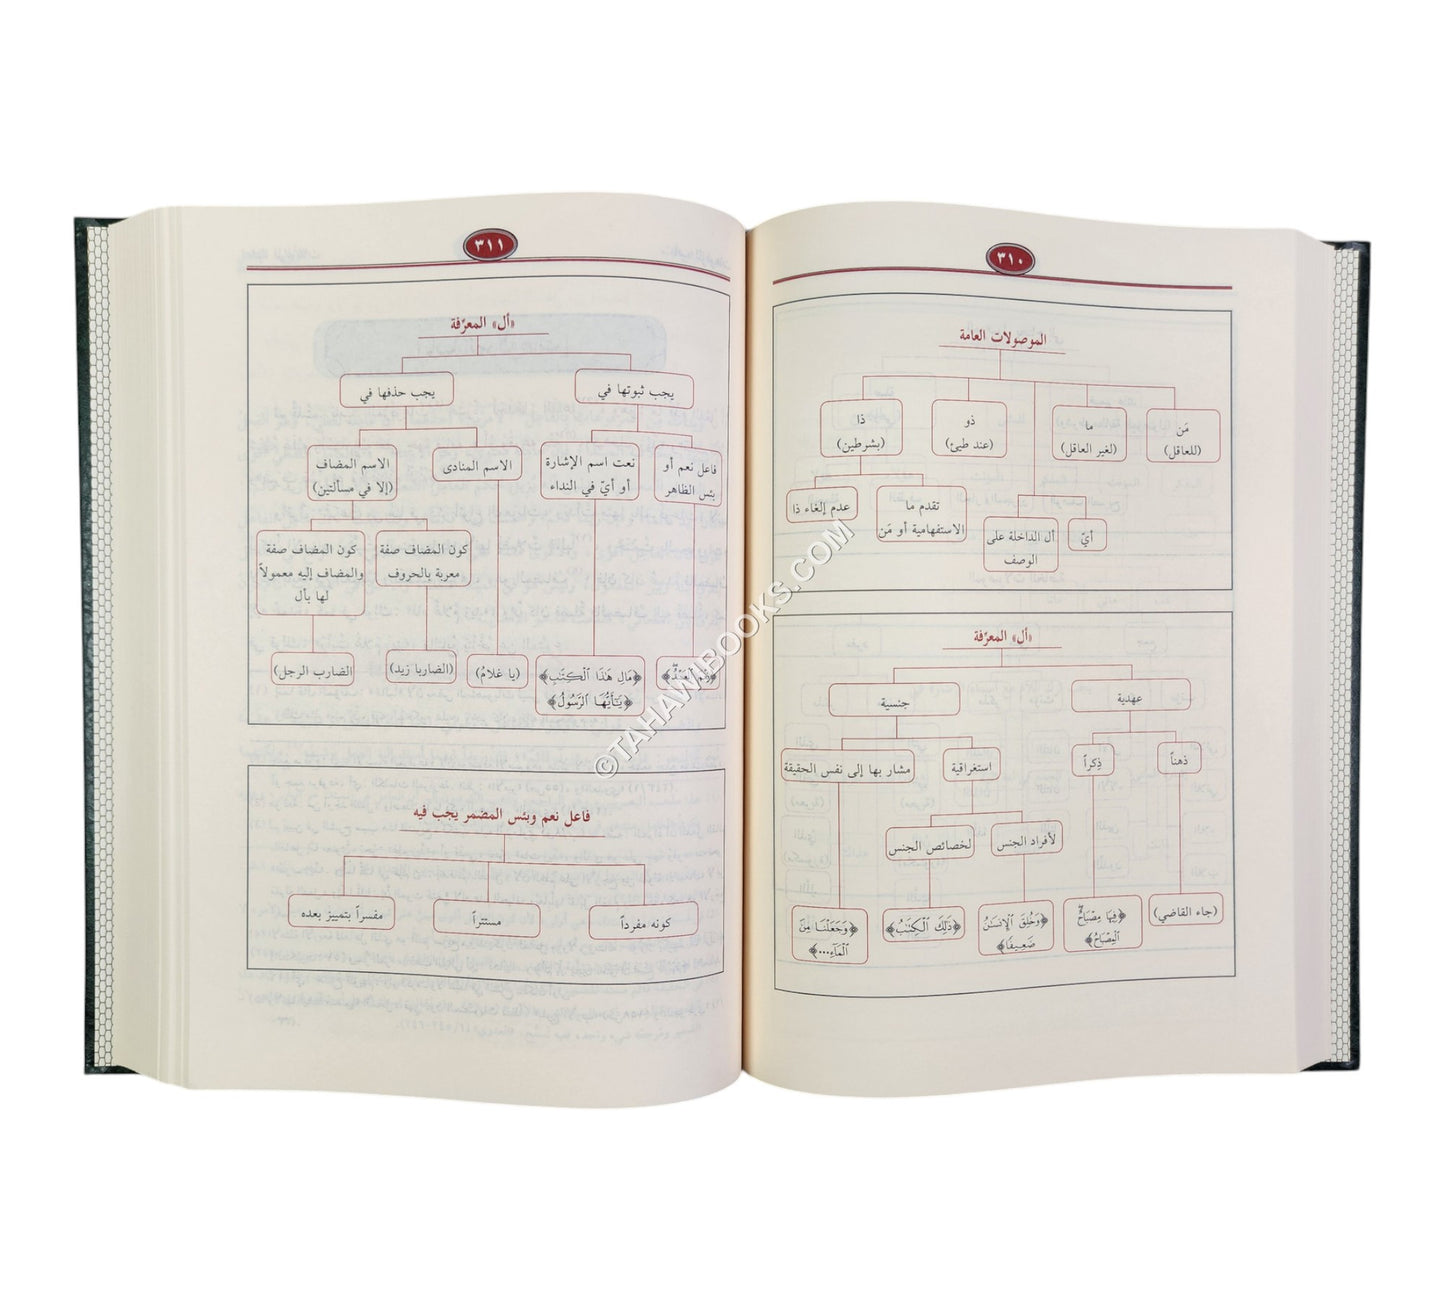 ٣١٠
الموصولات العامة
مَن
(للعاقل)
ما
(لغير العاقل)
ذو
(عند طيئ)
ذا
(بشرطين)
أيّ
أل الداخلة على
الوصف
تقدم ما
الاستفهامية أو مَن
عدم إلغاء ذا
«أل» المعرّفة
عهدية
جنسية
ذهناً
ذِكراً
استغراقية
مشار بها إلى نفس الحقيقة
لأفراد الجنس
لخصائص الجنس
(جاء القاضي)
﴿فِيهَا مِصْبَاحٌ
ٱلْمِصْبَاحُ﴾
﴿وَخُلِقَ ٱلْإِنسَٰنُ
ضَعِيفًا﴾
﴿ذَٰلِكَ ٱلْكِتَٰبُ﴾
﴿وَجَعَلْنَا مِنَ
ٱلْمَآءِ...﴾
٣١١
«أل» المعرّفة
يجب ثبوتها في
يجب حذفها في
فاعل نعم أو
بئس الظاهر
نعت اسم الإشارة
أو أيّ في النداء
الاسم المنادى
الاسم المضاف
(إلا في مسألتين)
كون المضاف صفة
معربة بالحروف
كون المضاف صفة
والمضاف إليه معمولاً
لها بأل
﴿نِعْمَ ٱلْعَبْدُ﴾
﴿مَالِ هَٰذَا ٱلْكِتَٰبِ﴾
﴿يَٰٓأَيُّهَا ٱلرَّسُولُ﴾
(يا غلامُ)
(الضاربا زيد)
(الضارب الرجل)
فاعل نعم وبئس المضمر يجب فيه
كونه مفرداً
مستتراً
مفسراً بتمييز بعده
©TAHAWIBOOKS.COM